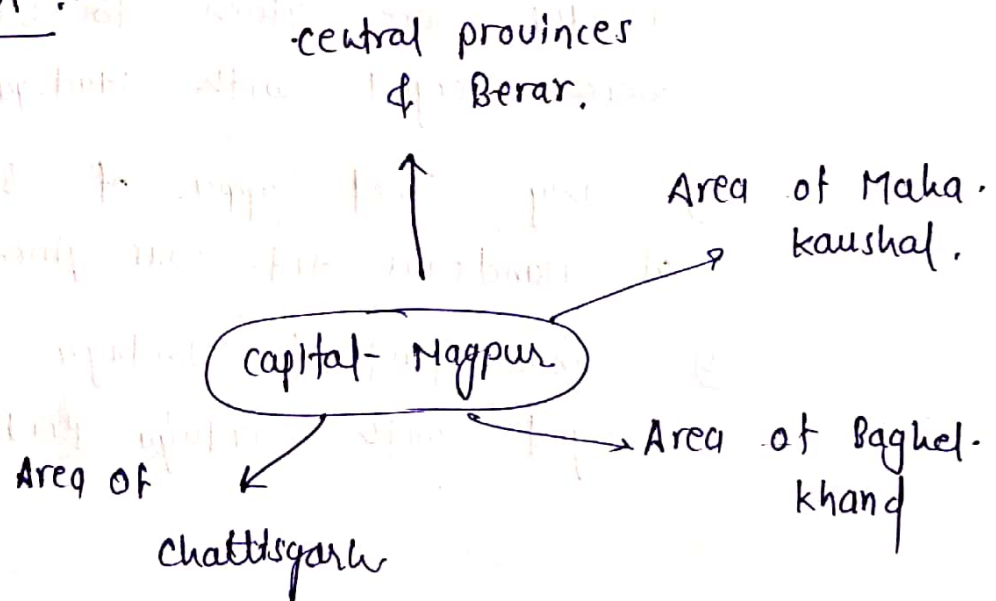 central provinces
& Berar.
Area of Maha.
kaushal.
Capital- Nagpur
Area of Baghel.
khand
Area of
Chattisgarh